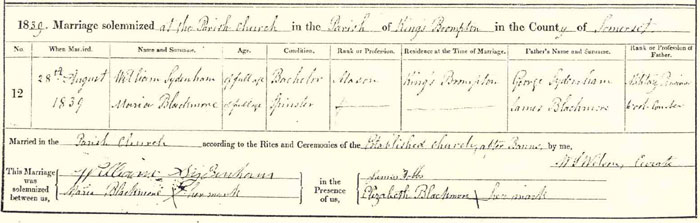 1839. Marriage solemnized at the Parish Church in the Parish of King's Brompton in the County of Somerset
No. When Married. Name and Surname. Age. Condition. Rank or Profession. Residence at the Time of Marriage. Father's Name and Surname. Rank or Profession of Father.
12 28th August William Sydenham of full age Bachelor Mason King's Brompton George Sydenham
1839 Maria Blackmore of full age Spinster James Blackmore Wool Comber
Married in the Parish Church according to the Rites and Ceremonies of the Established Church, after Banns, by me,
Wilson, Curate
This Marriage was solemnized between us,
William Sydenham
Maria Blackmore her mark
in the Presence of us,
James
Elizabeth Blackmore her mark